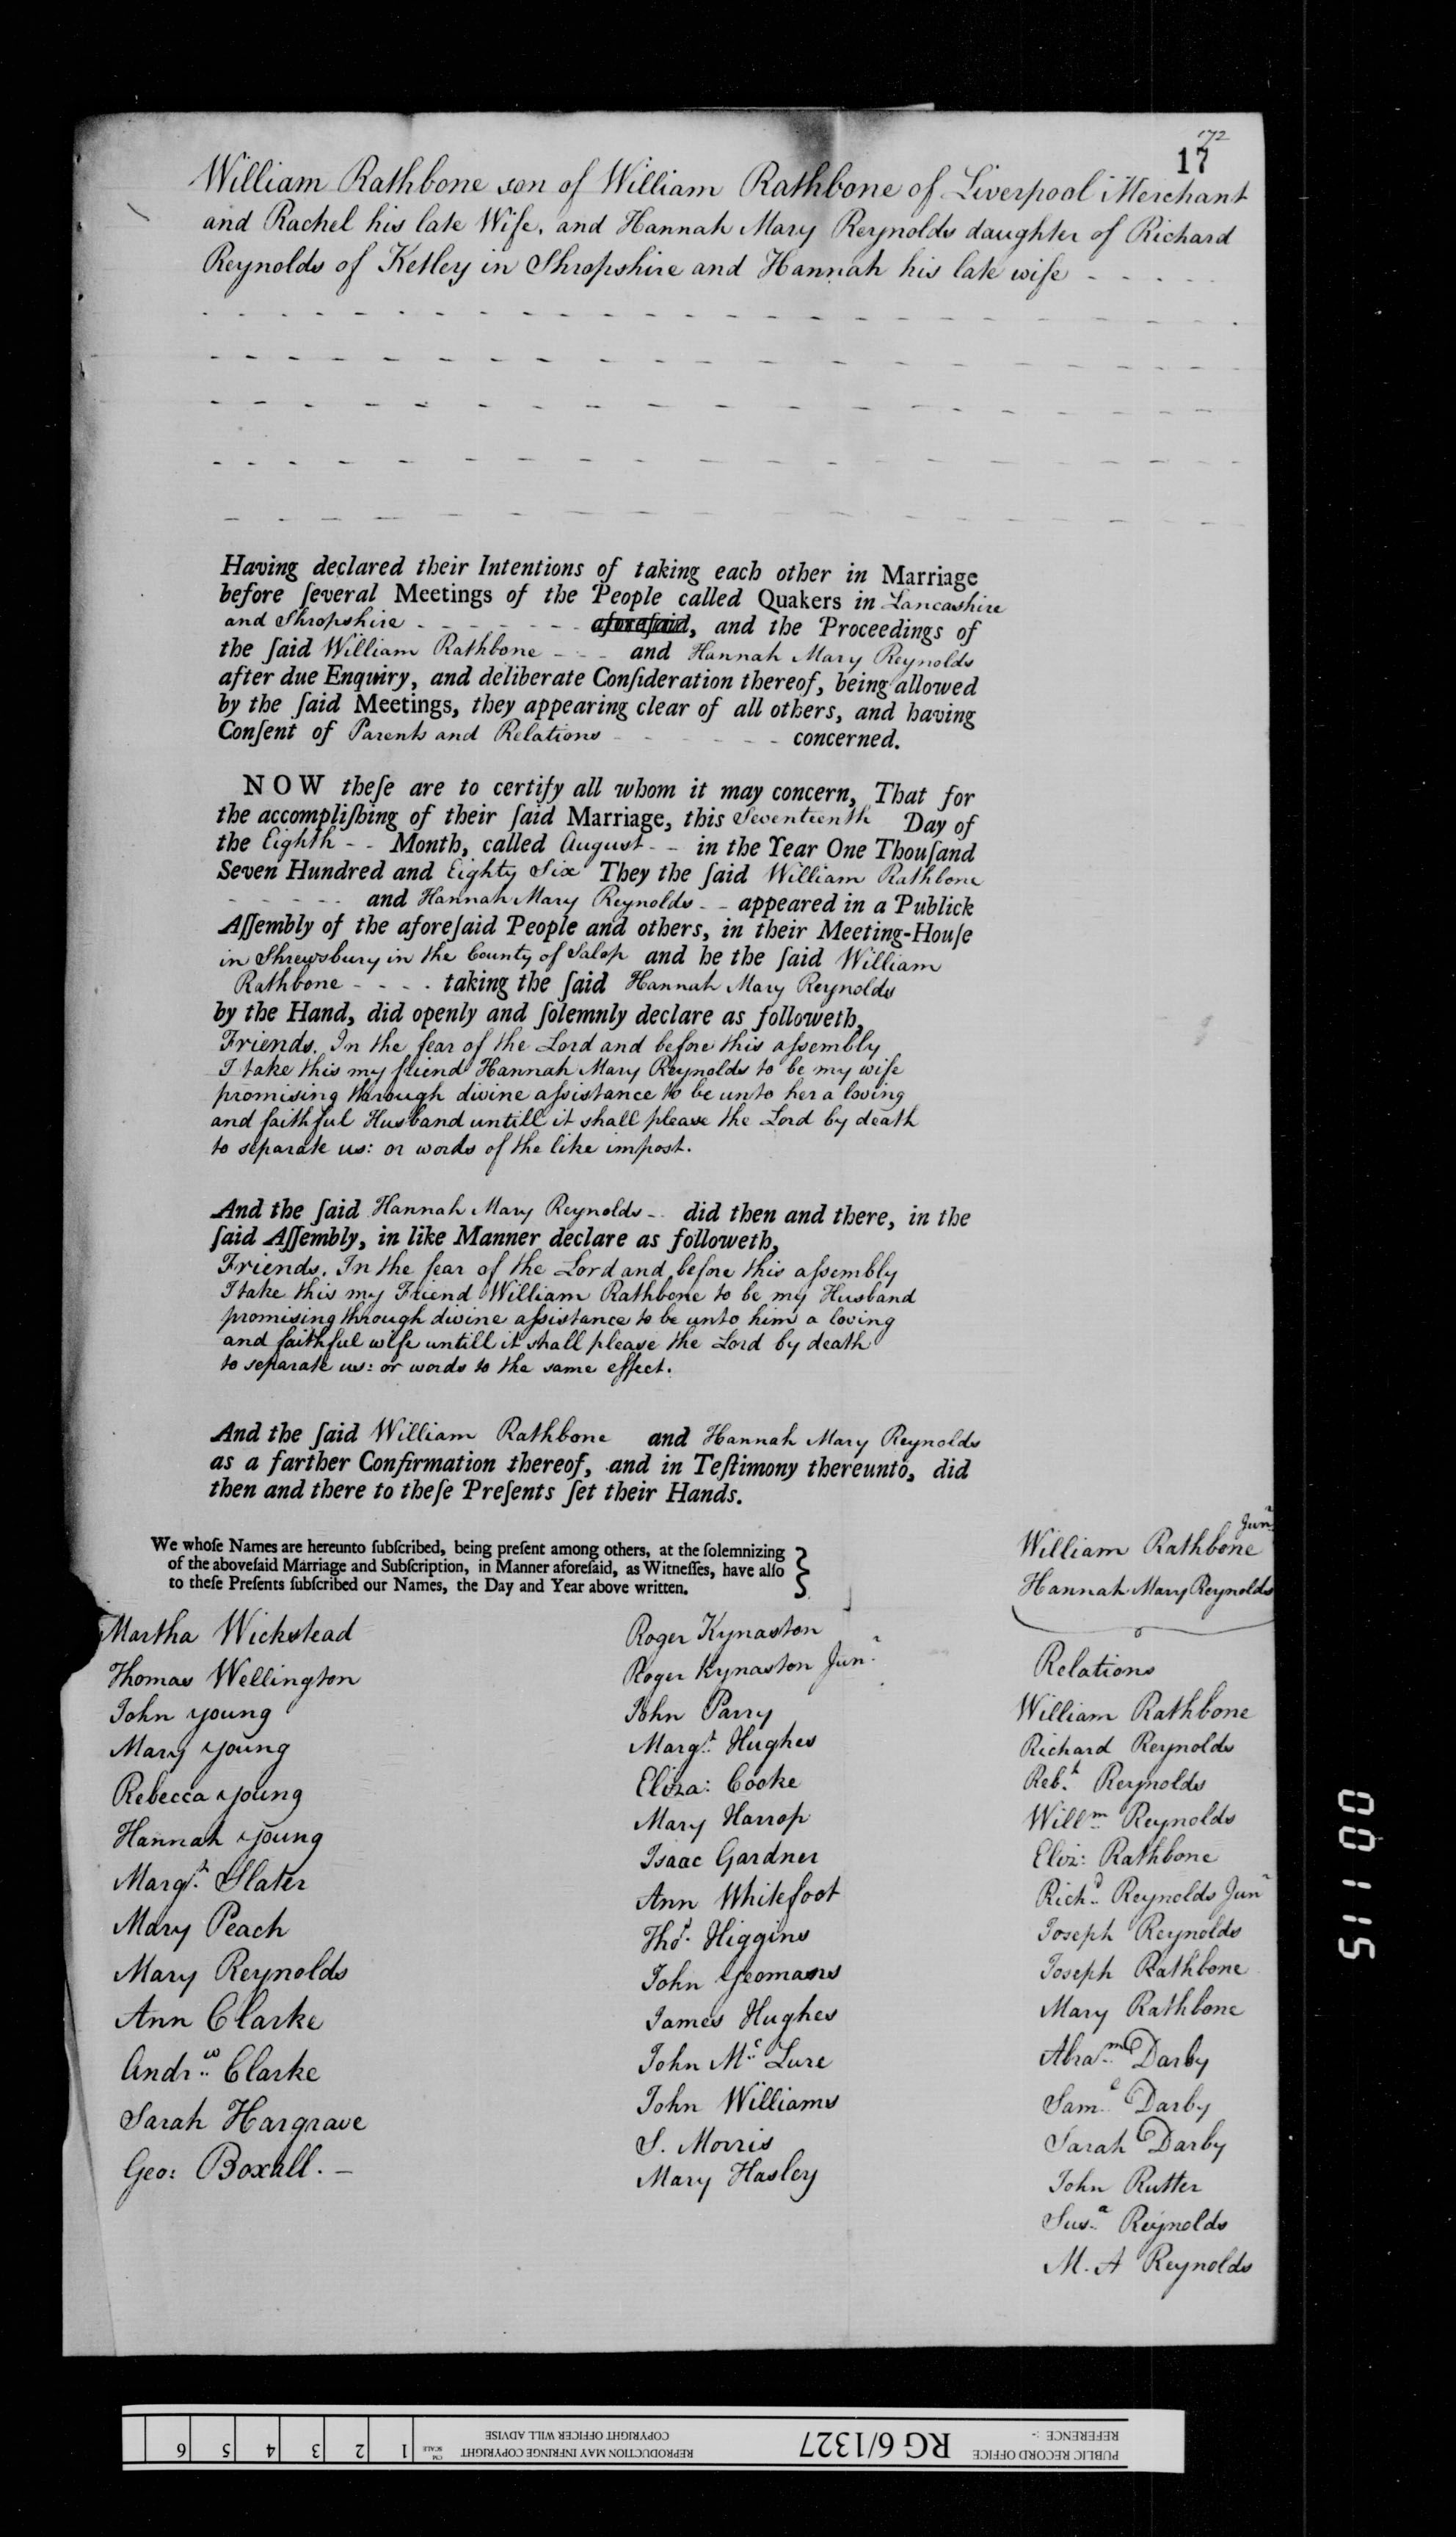 172
17
William Rathbone son of William Rathbone of Liverpool Merchant
and Rachel his late Wife, and Hannah Mary Reynolds daughter of Richard
Reynolds of Ketley in Shropshire and Hannah his late wife - - - - -
Having declared their Intentions of taking each other in Marriage
before ſeveral Meetings of the People called Quakers in Lancashire
and Shropshire - - - - - - - aforeſaid, and the Proceedings of
the ſaid William Rathbone - - - and Hannah Mary Reynolds
after due Enquiry, and deliberate Conſideration thereof, being allowed
by the ſaid Meetings, they appearing clear of all others, and having
Conſent of Parents and Relations - - - - - - - concerned.
NOW theſe are to certify all whom it may concern, That for
the accompliſhing of their ſaid Marriage, this Seventeenth Day of
the Eighth - - Month, called August - - in the Year One Thouſand
Seven Hundred and Eighty Six They the ſaid William Rathbone
- - - - - and Hannah Mary Reynolds - - appeared in a Publick
Aſſembly of the aforeſaid People and others, in their Meeting-Houſe
in Shrewsbury in the County of Salop and he the ſaid William
Rathbone - - - - taking the ſaid Hannah Mary Reynolds
by the Hand, did openly and ſolemnly declare as followeth,
Friends. In the fear of the Lord and before this aſsembly
I take this my friend Hannah Mary Reynolds to be my wife
promising through divine aſsistance to be unto her a loving
and faithful Husband untill it shall please the Lord by death
to separate us: or words of the like import.
And the ſaid Hannah Mary Reynolds - - did then and there, in the
ſaid Aſſembly, in like Manner declare as followeth,
Friends. In the fear of the Lord and before this aſsembly
I take this my Friend William Rathbone to be my Husband
promising through divine aſsistance to be unto him a loving
and faithful wife untill it shall please the Lord by death
to separate us: or words to the same effect.
And the ſaid William Rathbone and Hannah Mary Reynolds
as a farther Confirmation thereof, and in Teſtimony thereunto, did
then and there to theſe Preſents ſet their Hands.
We whoſe Names are hereunto ſubſcribed, being preſent among others, at the ſolemnizing
of the aboveſaid Marriage and Subſcription, in Manner aforeſaid, as Witneſſes, have alſo
to theſe Preſents ſubſcribed our Names, the Day and Year above written.
Martha Wickstead
Thomas Wellington
John Young
Mary Young
Rebecca Young
Hannah Young
Margt. Slater
Mary Peach
Mary Reynolds
Ann Clarke
Andrw. Clarke
Sarah Hargrave
Geo: Boxall. -
Roger Kynaston
Roger Kynaston Junr.
John Parry
Margt. Hughes
Eliza: Cooke
Mary Harrop
Isaac Gardner
Ann Whitefoot
Thos. Higgins
John Yeomans
James Hughes
John Mc. Lure
John Williams
S. Morris
Mary Hasley
William Rathbone Junr.
Hannah Mary Reynolds
Relations
William Rathbone
Richard Reynolds
Reb.h Reynolds
Willm. Reynolds
Eliz: Rathbone
Richd. Reynolds Junr
Joseph Reynolds
Joseph Rathbone
Mary Rathbone
Abram. Darby
Saml. Darby
Sarah Darby
John Rutter
Susa. Reynolds
M. A Reynolds
51100
PUBLIC RECORD OFFICE
REFERENCE :-
RG 6/1327
REPRODUCTION MAY INFRINGE COPYRIGHT
COPYRIGHT OFFICER WILL ADVISE
CM
SCALE
1 2 3 4 5 6